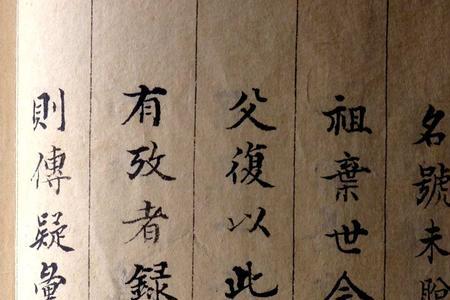 名號未
祖棄世
父復以此
有攷者録
則傳疑彙